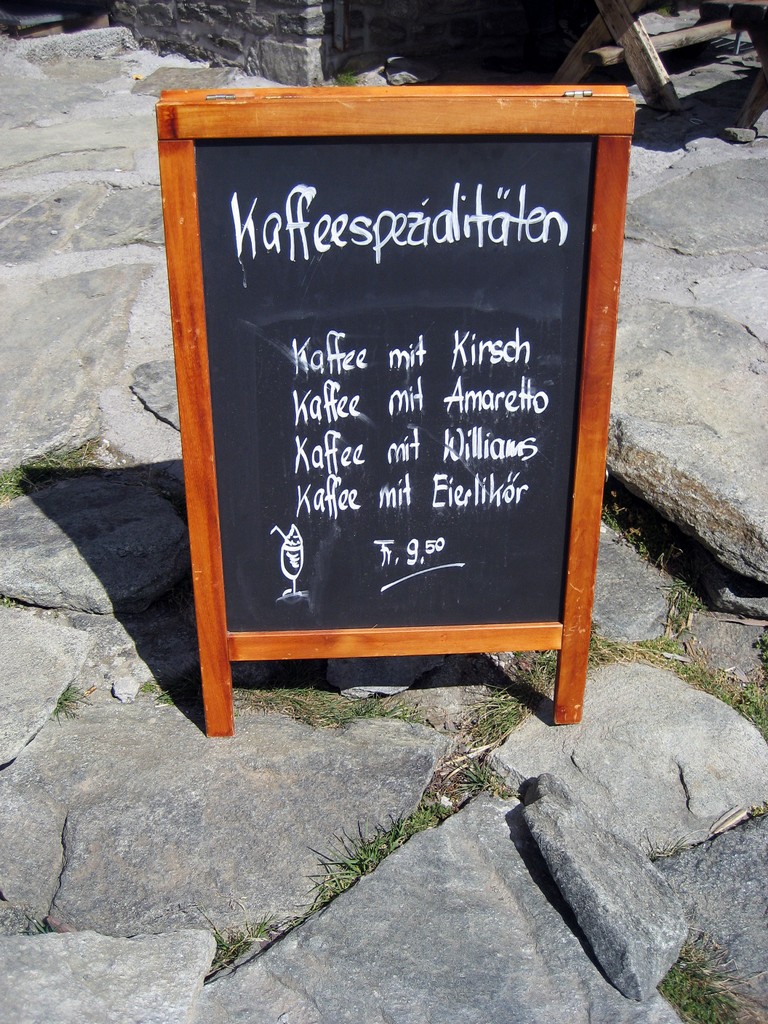 Kaffeespezialitäten
Kaffee mit Kirsch
Kaffee mit Amaretto
Kaffee mit Williams
Kaffee mit Eierlikör
Fr. 9.50